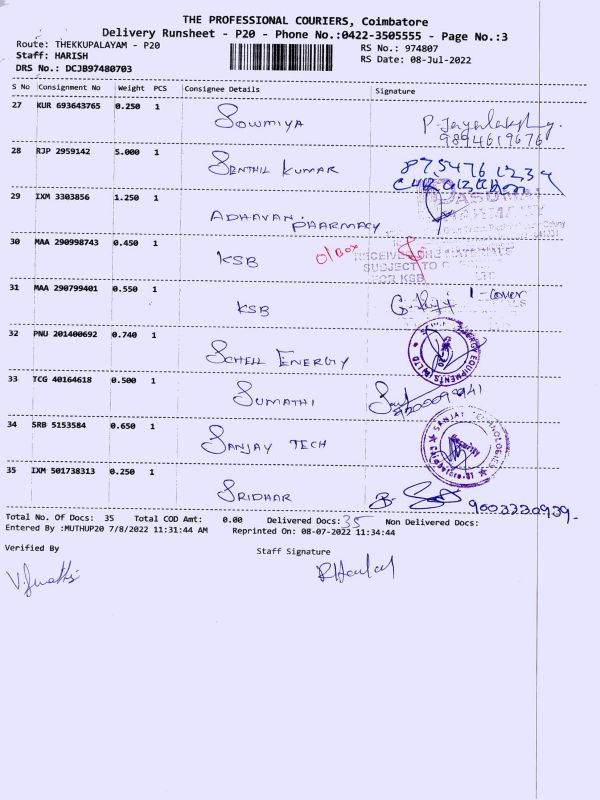 THE PROFESSIONAL COURIERS, Coimbatore
Delivery Runsheet - P20 - Phone No.:0422-3505555 - Page No.:3
Route: THEKKUPALAYAM - P20
RS No.: 974807
Staff: HARISH
RS Date: 08-Jul-2022
DRS No.: DCJB97480703
S No Consignment No Weight PCS Consignee Details Signature
27 KUR 693643765 0.250 1 SOWMIYA
9894619676
28 RJP 2959142 5.000 1 SENTHIL KUMAR
29 IXM 3303856 1.250 1 ADHAVAN PHARMACY
30 MAA 290998743 0.450 1 KSB
SUBJECT TO
FOR KSB
31 MAA 290799401 0.550 1 KSB 1-cover
32 PNU 201400692 0.740 1 SCHELL ENERGY
33 TCG 40164618 0.500 1 SUMATHI
34 SRB 5153584 0.650 1 SANJAY TECH
SANJAY TECHNOLOGIES
Coimbatore
35 IXM 501738313 0.250 1 SRIDHAR
Total No. Of Docs: 35 Total COD Amt: 0.00 Delivered Docs: 35 Non Delivered Docs:
Entered By :MUTHUP20 7/8/2022 11:31:44 AM Reprinted On: 08-07-2022 11:34:44
Verified By Staff Signature